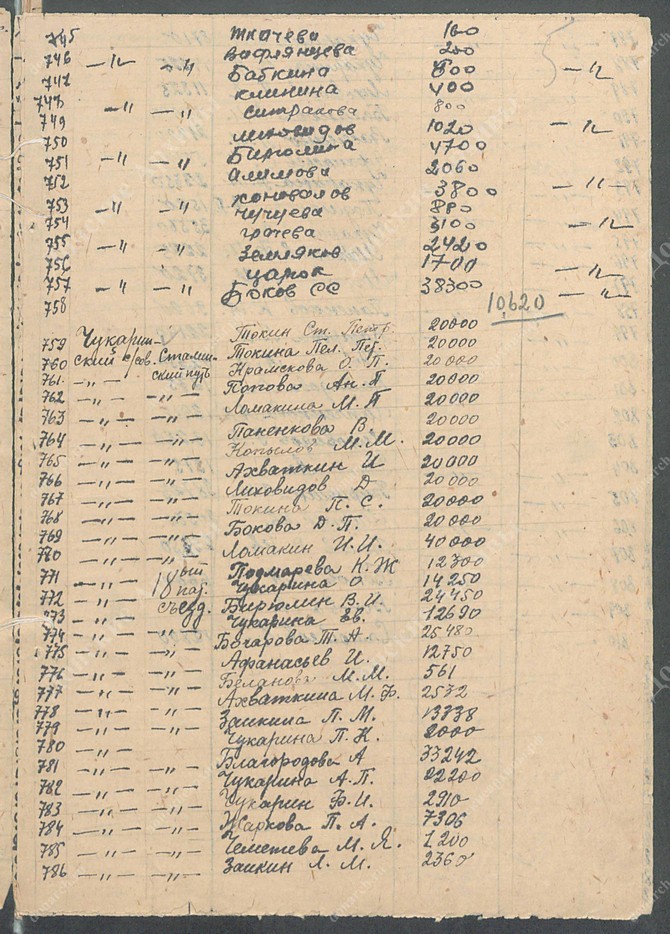 745 Ткачева 100
746 —"— —"— Вифлянцева 200
747 Бабкина 800 —"—
748 Клинина 400
749 —"— —"— Ситракова 800
750 Лиховидов 1020 —"—
751 —"— —"— Бирюлина 4700
752 Алимова 2060
753 —"— —"— Коновалов 3800 —"—
754 Чучуева 880
755 —"— —"— Грачева 3100 —"—
756 Земляков 2420
757 —"— —"— Царок 1700 —"—
758 Боков СС 38300 —"—
10,620
759 Чукарин- Токин Ст. Петр. 20000
760 ский с/сов. Сталин- Токина Пел. Пет. 20000
761 —"— ский путь Крамскова О. П. 20000
762 —"— —"— Попова Ан. П 20000
763 —"— —"— Ломакина М. П 20000
764 —"— —"— Паненкова В. 20000
765 —"— —"— Копылов М.М. 20000
766 —"— —"— Ахваткин И 20000
767 —"— —"— Лиховидов Д 20000
768 —"— —"— Токина П. С. 20000
769 —"— —"— Бокова Д. П. 20000
770 —"— —"— Ломакин И.И. 40000
771 —"— 18 ый Подмарева К. Ж 12300
772 —"— пар. Чукарина О 14250
773 —"— съезд. Бирюлин В.И. 24450
774 —"— —"— Чукарина Ев. 12690
775 —"— —"— Бочарова Т. А. 25480
776 —"— —"— Афанасьев И. 12750
777 —"— —"— Беланова М.М. 561
778 —"— —"— Ахваткина М. Ф. 2532
779 —"— —"— Заикина П. М. 13338
780 —"— Чукарина П. К. 2000
781 —"— —"— Благородова А 33242
782 —"— —"— Чукарина А.П. 22200
783 —"— —"— Чукарин Ф.И. 2910
784 —"— —"— Жаркова П. А. 7306
785 —"— —"— Чеметева М. Я. 1200
786 —"— —"— Заикин Л. М. 2360